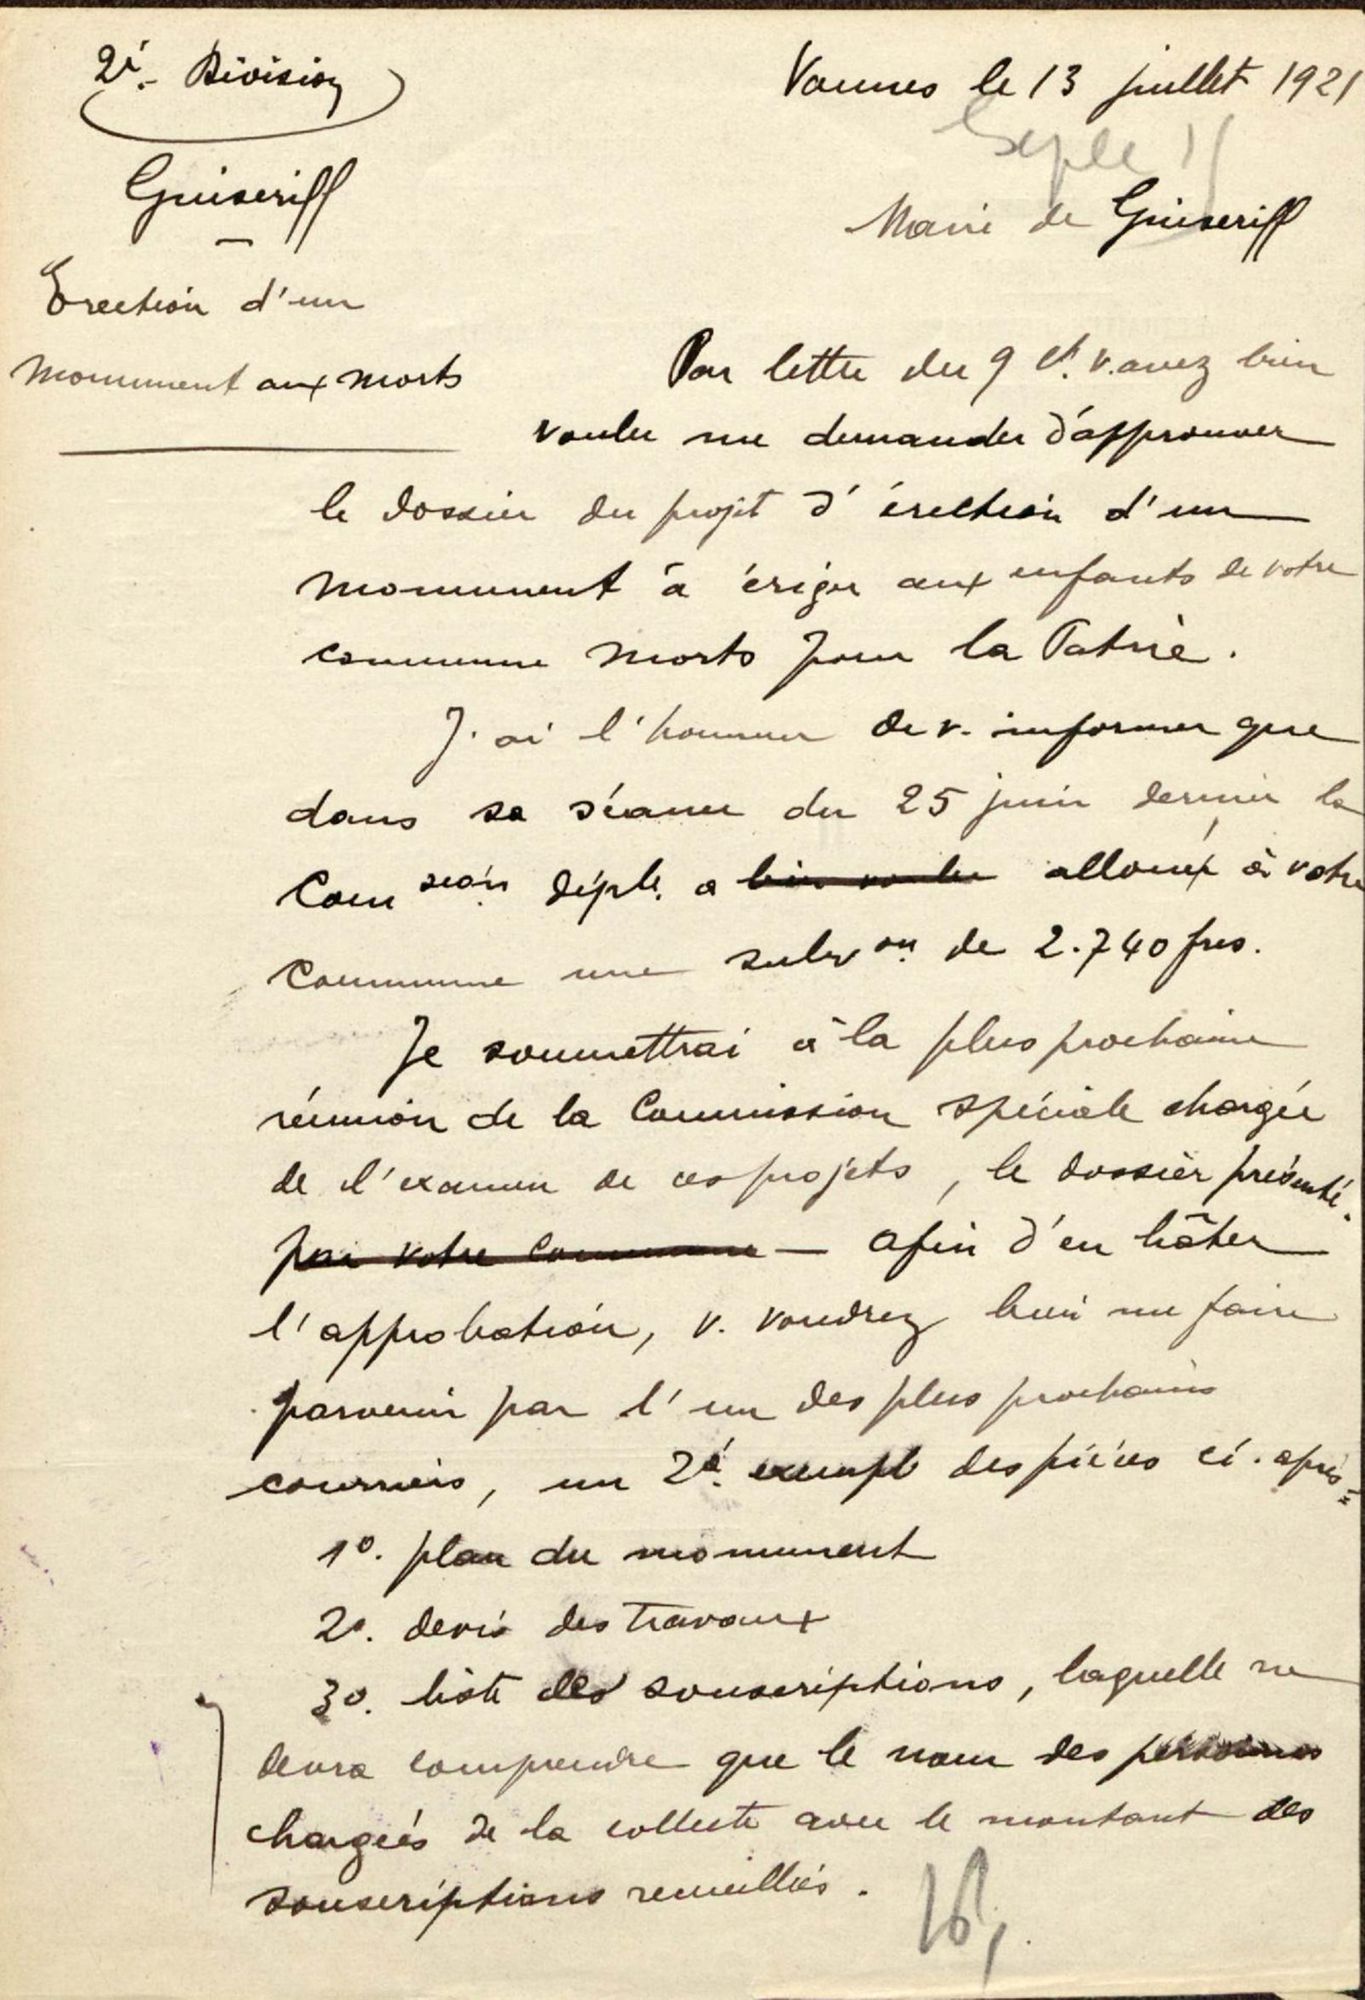 2è. Division
Guiscriff
Erection d'un
monument aux morts
Vannes le 13 juillet 1921
Maire de Guiscriff
Par lettre du 9 ct. v. avez bien
voulu me demander d'approuver
le dossier du projet d'érection d'un
monument à ériger aux enfants de votre
commune morts pour la Patrie.
J'ai l'honneur de v. informer que
dans sa séance du 25 juin dernier la
Comssion déple. a bien voulu alloué à votre
commune une subvon. de 2.740 frcs.
Je soumettrai à la plus prochaine
réunion de la Commission spéciale chargée
de l'examen de ces projets, le dossier présenté.
par votre commune — afin d'en hâter
l'approbation, v. voudrez bien me faire
parvenir par l'un des plus prochains
courriers, un 2è. exempl des pièces ci-après =
1º. plan du monument
2º. devis des travaux
3º. liste des souscriptions, laquelle ne
devra comprendre que le nom des personnes
chargées de la collecte avec le montant des
souscriptions recueillies.